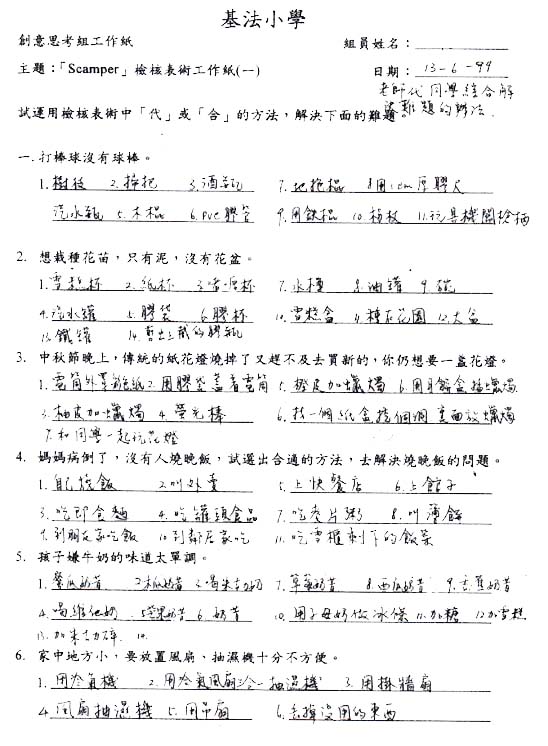 基法小學
創意思考組工作紙 組員姓名：
主題：「Scamper」檢核表術工作紙(一) 日期： 13-6-99
老師代同學綜合解
試運用檢核表術中「代」或「合」的方法，解決下面的難題 難題的辦法
一. 打棒球沒有球棒。
1. 樹枝 2. 掃把 3. 酒瓶 7. 地拖棍 8. 用1cm厚膠尺
汽水瓶 5. 木棍 6. PVC膠管 9. 用鐵棍 10 11. 玩具機關槍
2. 想栽種花苗，只有泥，沒有花盆。
1. 雪糕杯 2. 紙杯 3. 7. 水桶 8. 油罐 9. 碗
4. 汽水罐 5. 膠袋 6. 膠杯 10. 雪糕盒 11. 種在花園 12. 大盒
13. 鐵罐 14. 剪出 的膠瓶
3. 中秋節晚上，傳統的紙花燈燒掉了又趕不及去買新的，你仍想要一盞花燈。
1. 電筒外罩 紙 2. 用膠袋蓋着電筒 5. 橙皮加蠟燭 6. 用月餅盒 蠟燭
3. 柚皮加蠟燭 4. 螢光棒 6. 找一個紙盒挖個洞 裏面放蠟燭
7. 和同學一起玩花燈
4. 媽媽病倒了，沒有人燒晚飯，試選出合適的方法，去解決燒晚飯的問題。
1. 自己燒飯 2. 叫外賣 5. 上快餐店 6. 上館子
3. 吃即食麵 4. 吃罐頭食品 7. 吃麥片粥 8. 叫薄餅
9. 到朋友家吃飯 10 到鄰居家吃 11. 吃雪櫃剩下的飯菜
5. 孩子嫌牛奶的味道太單調。
1. 奶昔 2. 木瓜奶昔 3. 喝朱古力奶 7. 草莓奶昔 8. 西瓜奶昔 9. 香蕉奶昔
4. 喝維他奶 5. 芒果奶昔 6. 奶昔 10. 用子母奶做冰條 11. 加糖 12. 加雪糕
13. 加朱古力碎 14.
6. 家中地方小，要放置風扇、抽濕機十分不方便。
1. 用冷氣機 2. 用冷氣風扇三合一抽濕機 3. 用掛牆扇
4. 風扇抽濕機 5. 用吊扇 6. 丟掉沒用的東西